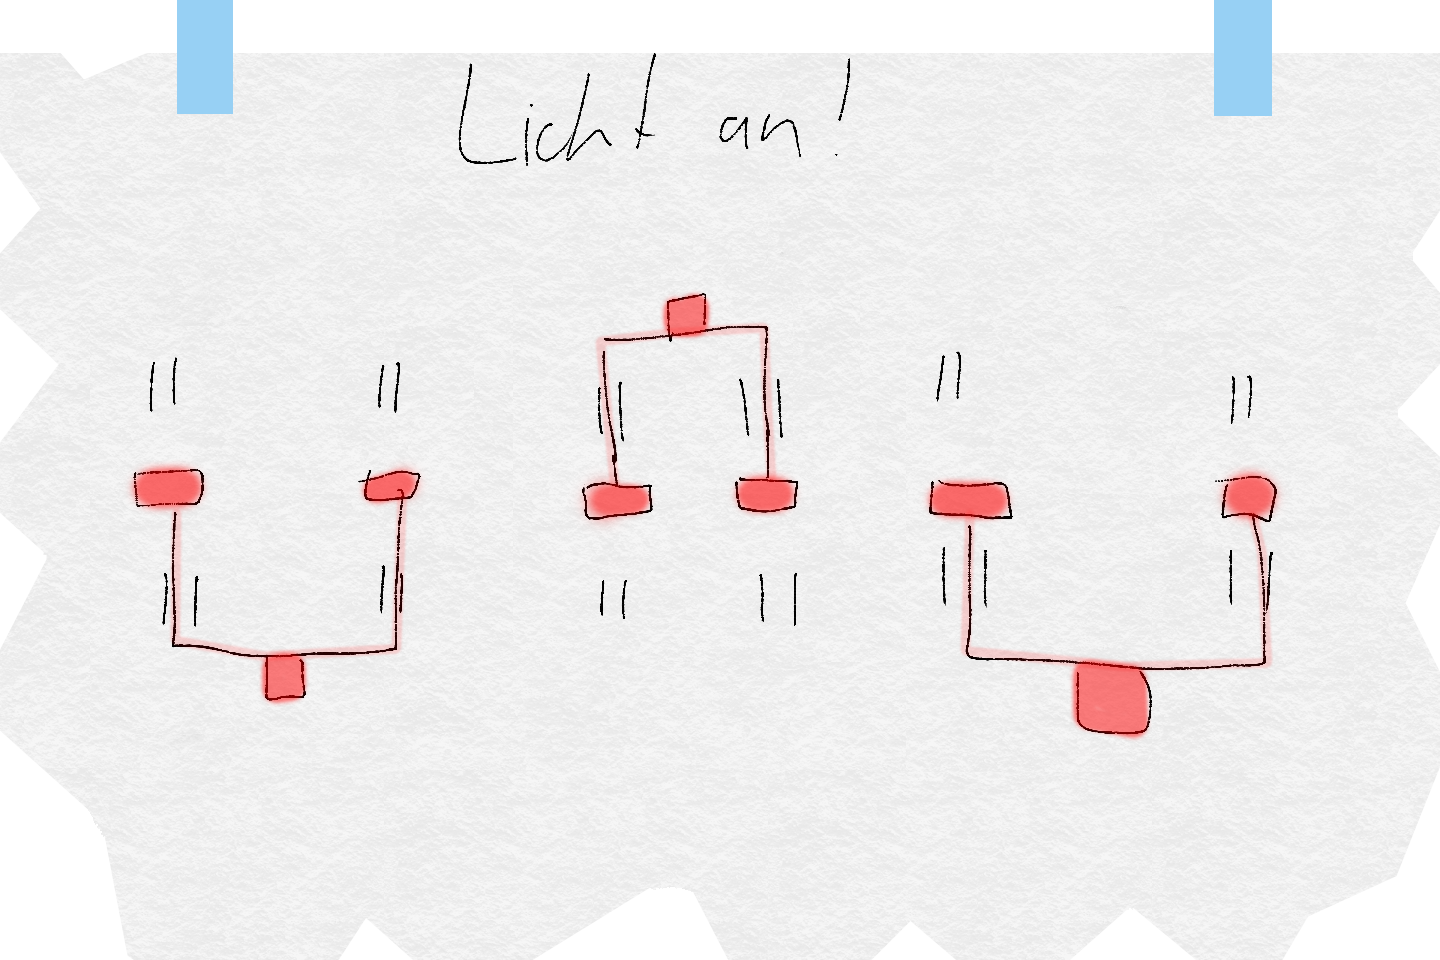 Licht an!